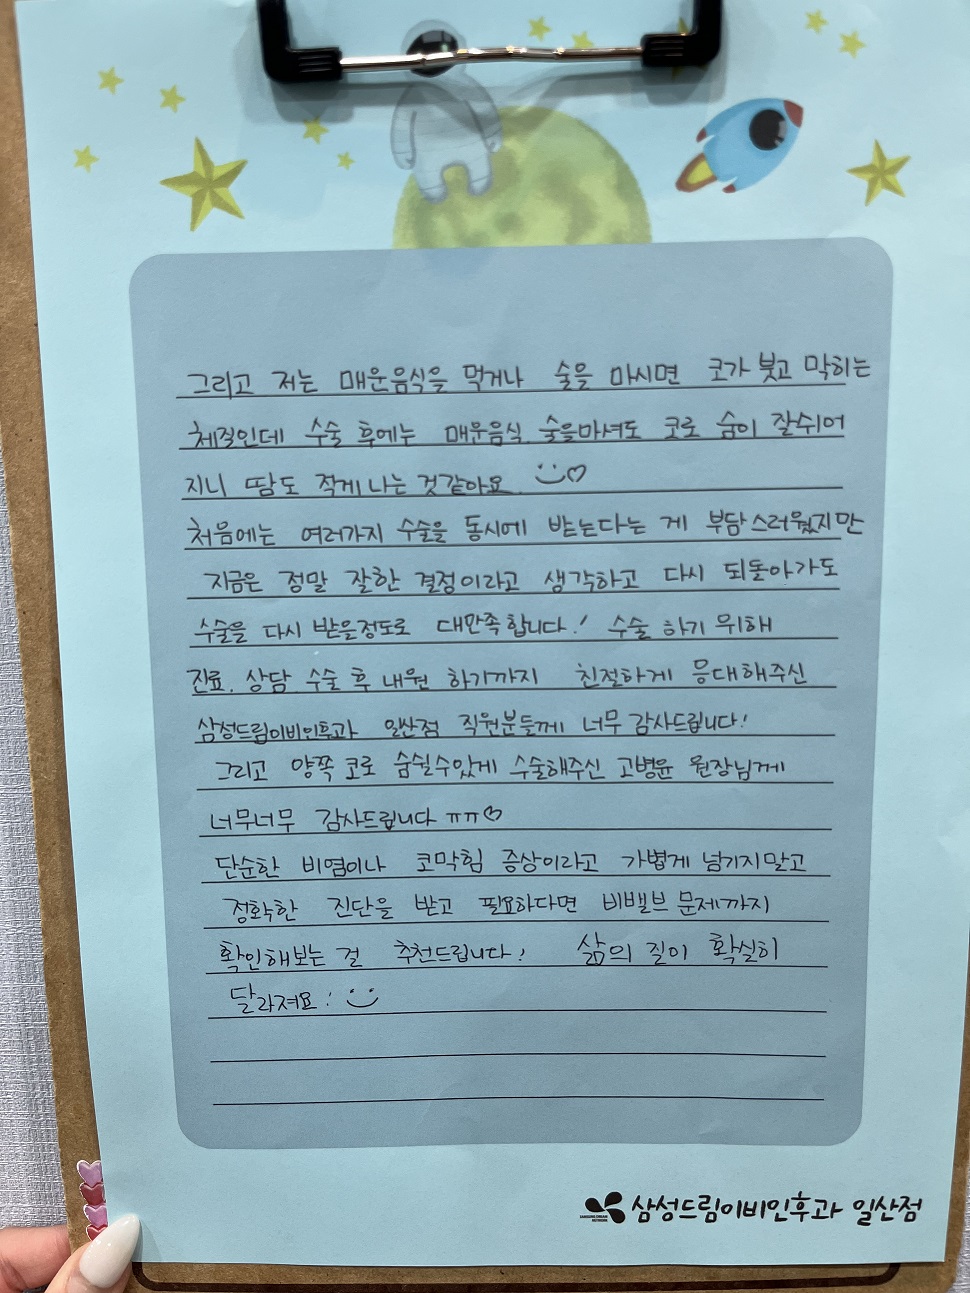 그리고 저는 매운음식을 먹거나 술을 마시면 코가 붓고 막히는
체질인데 수술 후에는 매운음식. 술을마셔도 코로 숨이 잘쉬어
지니 땀도 적게 나는 것같아요.
처음에는 여러가지 수술을 동시에 받는다는 게 부담스러웠지만
지금은 정말 잘한 결정이라고 생각하고 다시 되돌아가도
수술을 다시 받을정도로 대만족합니다! 수술 하기 위해
진료. 상담 수술 후 내원 하기까지 친절하게 응대해주신
삼성드림이비인후과 일산점 직원분들께 너무 감사드립니다!
그리고 양쪽 코로 숨쉴수있게 수술해주신 고병윤 원장님께
너무너무 감사드립니다 ㅠㅠ♡
단순한 비염이나 코막힘 증상이라고 가볍게 넘기지말고
정확한 진단을 받고 필요하다면 비밸브 문제까지
확인해보는 걸 추천드립니다! 삶의 질이 확실히
달라져요!
삼성드림이비인후과 일산점